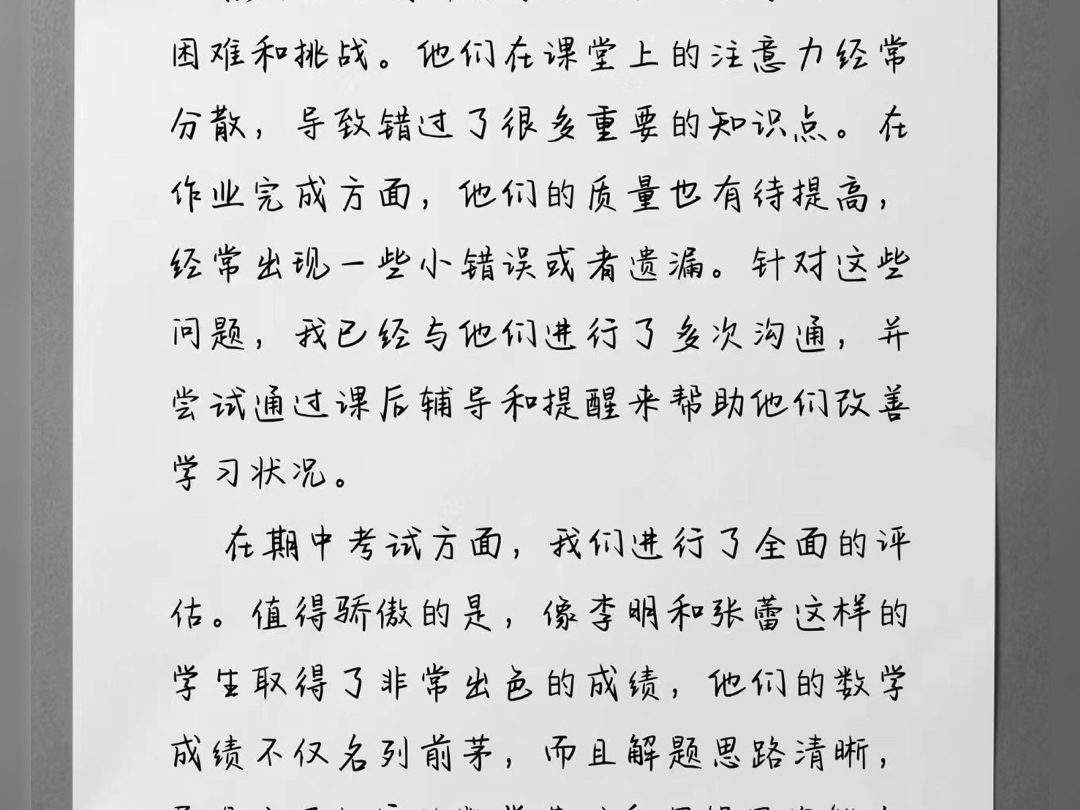 困难和挑战。他们在课堂上的注意力经常
分散，导致错过了很多重要的知识点。在
作业完成方面，他们的质量也有待提高，
经常出现一些小错误或者遗漏。针对这些
问题，我已经与他们进行了多次沟通，并
尝试通过课后辅导和提醒来帮助他们改善
学习状况。
在期中考试方面，我们进行了全面的评
估。值得骄傲的是，像李明和张蕾这样的
学生取得了非常出色的成绩，他们的数学
成绩不仅名列前茅，而且解题思路清晰，